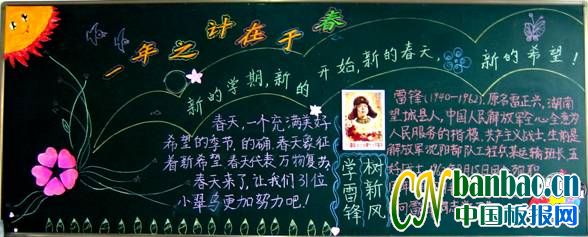 一年之计在于春
新的学期,新的开始,新的春天,新的希望!
春天,一个充满美好
希望的季节,的确,春天象征
着新希望,春天代表万物复苏
春天来了,让我们引位
小辈鸟更加努力吧!
学雷锋
树新风
雷锋(1940-1962),原名雷正兴,湖南
望城县人,中国人民解放军全心全意为
人民服务的楷模,共产主义战士,生前是
解放军沈阳部队工程兵某运输班长,五
CNbanbao.cn
中国板报网